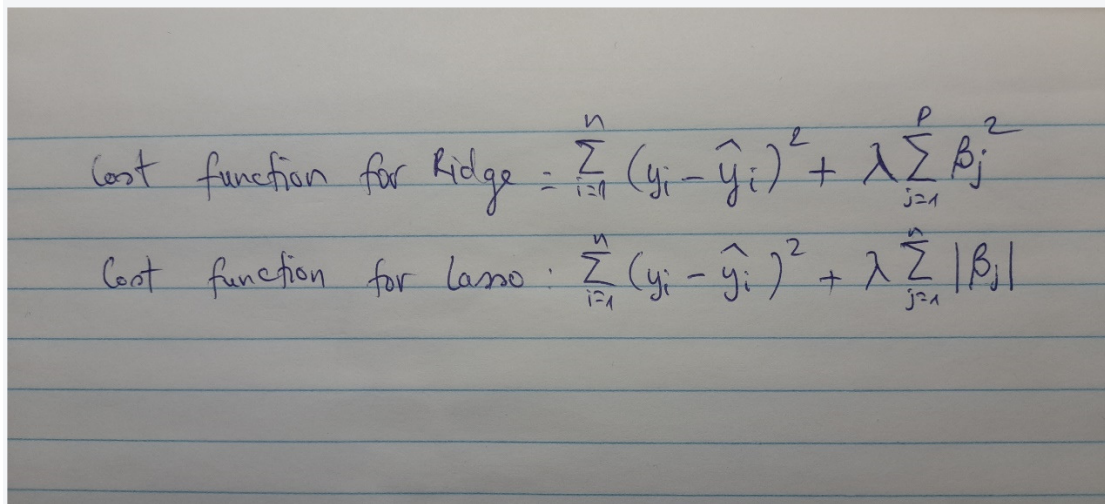 Cost function for Ridge = ∑_{i=1}^{n} (y_i - ŷ_i)^2 + λ ∑_{j=1}^{p} β_j^2
Cost function for Lasso : ∑_{i=1}^{n} (y_i - ŷ_i)^2 + λ ∑_{j=1}^{n} |β_j|